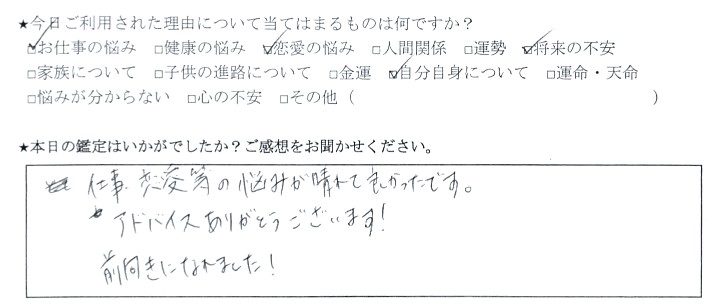 ★今日ご利用された理由について当てはまるものは何ですか？
☑お仕事の悩み □健康の悩み ☑恋愛の悩み □人間関係 □運勢 ☑将来の不安
□家族について □子供の進路について □金運 ☑自分自身について □運命・天命
□悩みが分からない □心の不安 □その他（ ）
★本日の鑑定はいかがでしたか？ご感想をお聞かせください。
仕事、恋愛等の悩みが晴れて良かったです。
アドバイスありがとうございます！
前向きになれました！